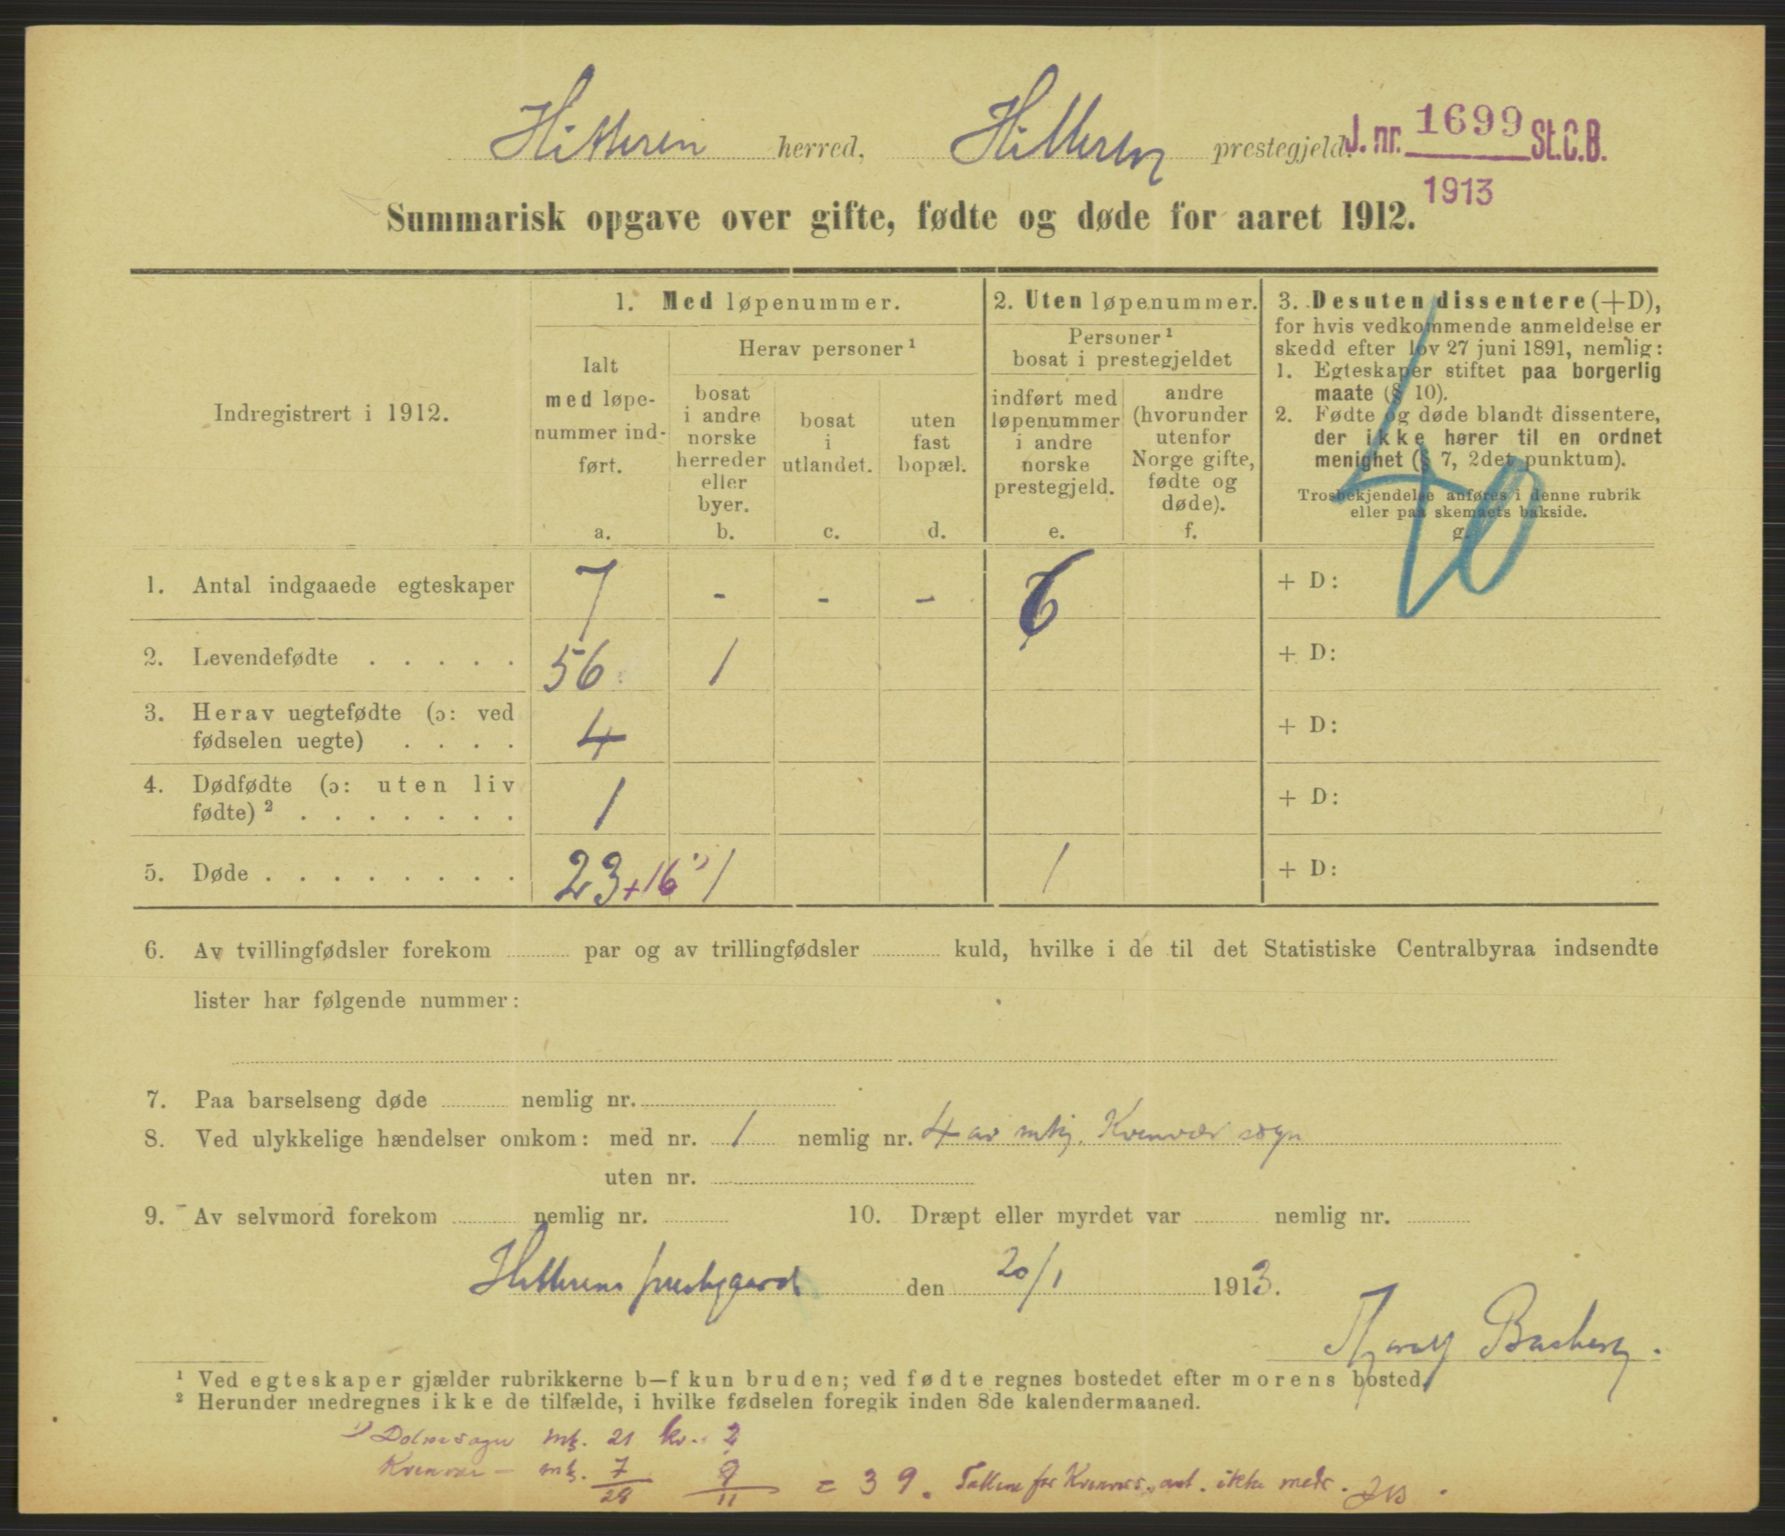 Hitteren herred, Hitteren prestegjeld. J. nr. 1699 St.C.B.
1913
Summarisk opgave over gifte, fødte og døde for aaret 1912.
Indregistrert i 1912.
1. Med løpenummer.
Ialt
med løpe-
nummer ind-
ført.
a.
Herav personer ¹
bosat
i andre
norske
herreder
eller
byer.
b.
bosat
i
utlandet.
c.
uten
fast
bopæl.
d.
2. Uten løpenummer.
Personer ¹
bosat i prestegjeldet
indført med
løpenummer
i andre
norske
prestegjeld.
e.
andre
(hvorunder
utenfor
Norge gifte,
fødte og
døde).
f.
3. Desuten dissentere (+D),
for hvis vedkommende anmeldelse er
skedd efter lov 27 juni 1891, nemlig:
1. Egteskaper stiftet paa borgerlig
maate (§ 10).
2. Fødte og døde blandt dissentere,
der ikke hører til en ordnet
menighet (§ 7, 2det punktum).
Trosbekjendelse anføres i denne rubrik
eller paa skemaets bakside.
g.
1. Antal indgaaede egteskaper 7 - - - 6 + D:
2. Levendefødte . . . . . 56 1 + D:
3. Herav uegtefødte (ɔ: ved
fødselen uegte) . . . . 4 + D:
4. Dødfødte (ɔ: uten liv
fødte) ² . . . . . . . 1 + D:
5. Døde . . . . . . . . 23 +16 ¹) 1 1 + D:
6. Av tvillingfødsler forekom par og av trillingfødsler kuld, hvilke i de til det Statistiske Centralbyraa indsendte
lister har følgende nummer:
7. Paa barselseng døde nemlig nr.
8. Ved ulykkelige hændelser omkom: med nr. 1 nemlig nr. 4 av mkj. Kvenvær sogn
uten nr.
9. Av selvmord forekom nemlig nr. 10. Dræpt eller myrdet var nemlig nr.
Hitterens prestegaard den 20/1 1913.
¹ Ved egteskaper gjælder rubrikkerne b—f kun bruden; ved fødte regnes bostedet efter morens bosted.
² Herunder medregnes ikke de tilfælde, i hvilke fødselen foregik inden 8de kalendermaaned.
¹) Dolmesogn mk. 21 kv. 2
Kvenvær — mk. 7 9
28 11 = 39. Tallene for Kvenvær ikke medr.